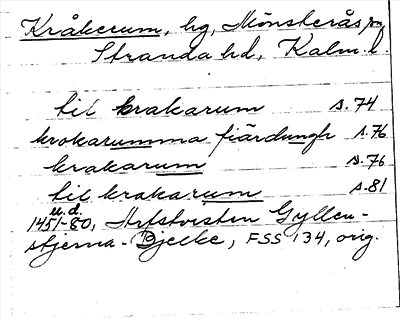 Kråkerum, hg, Mönsterås sn,
Stranda hd, Kalm. l.
til krakarum s. 74
krokarumma fiärdungh s. 76
krakarum s. 76
til krakarum s. 81
u.d.
1451-80, Arfstvisten Gyllen-
stjerna-Bjelke, FSS 134, orig.